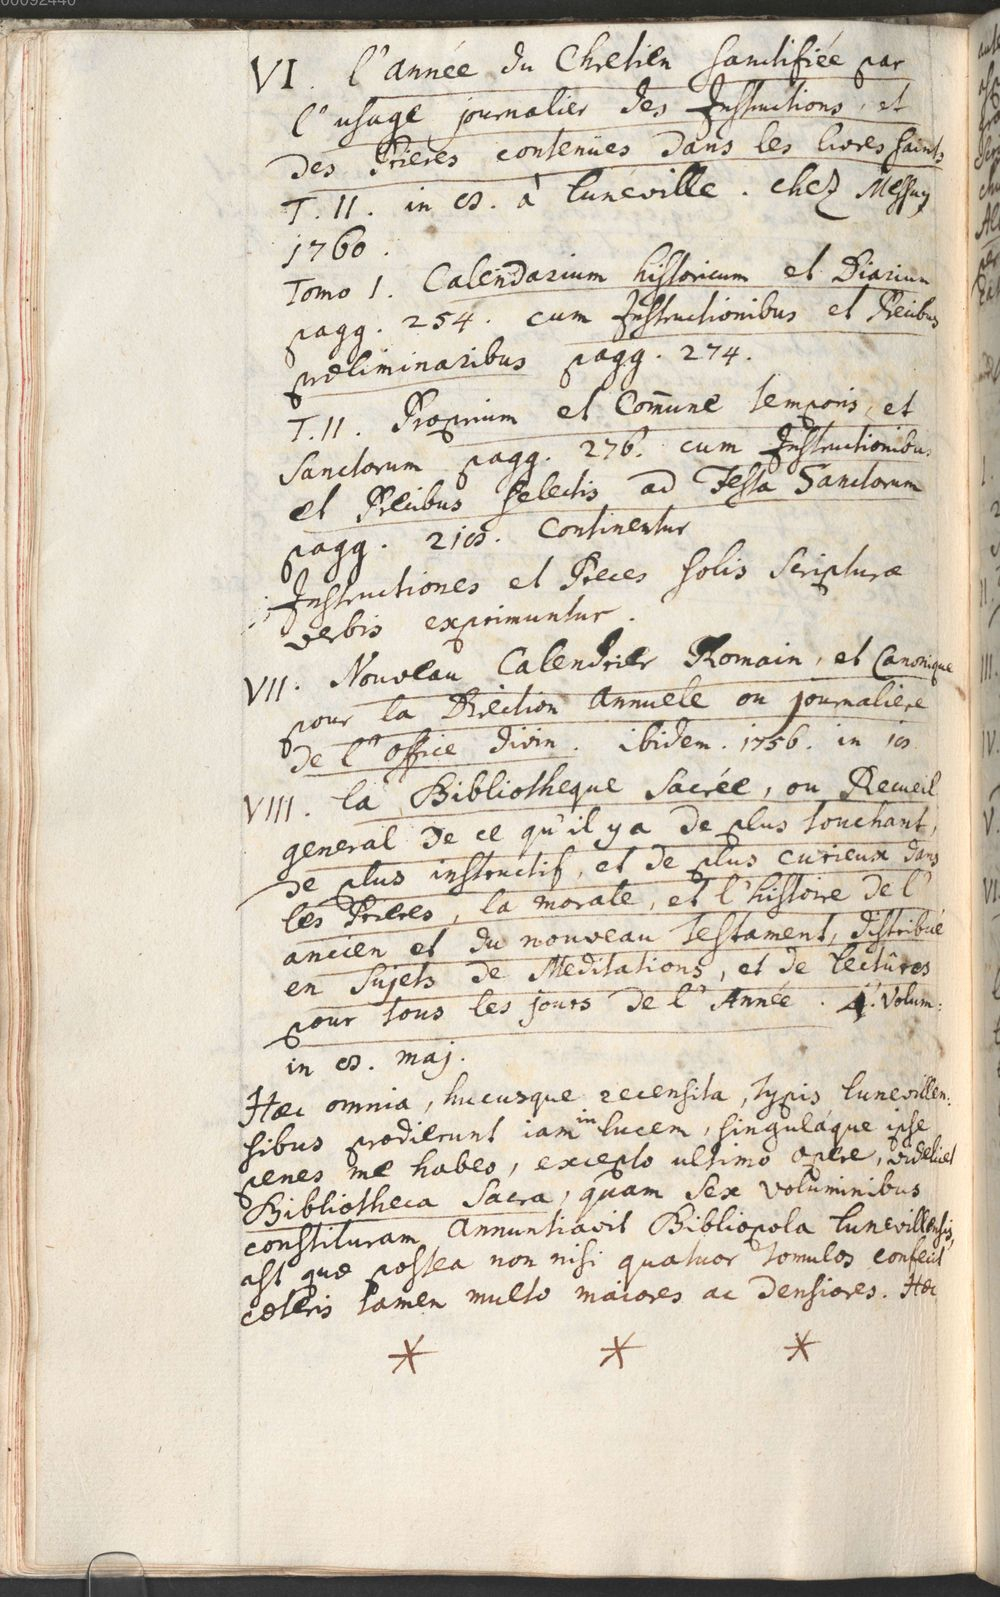 00092440
VI. l'année du Chretien sanctifiée par
l'usage journalier des Instructions, et
des Prieres contenües dans les livres saints
T. II. in 8. à Luneville. chez Messuy
1760.
Tomo I. Calendarium historicum et Diarium
pagg. 254. cum Instructionibus et Precibus
præliminaribus pagg. 274.
T. II. Proprium et Com̄une temporis, et
Sanctorum pagg. 276. cum Instructionibus
et Precibus selectis ad Festa Sanctorum
pagg. 218. continentur
Instructiones et Preces solis Scripturæ
verbis exprimuntur.
VII. Nouveau Calendrier Romain, et Canonique
pour la Direction Annuele ou journaliere
de l'office divin. ibidem. 1756. in 18.
VIII. la Bibliotheque Sacrée, ou Recueil
general de ce qu'il y a de plus touchant,
de plus instructif, et de plus curieux dans
les Prieres, la morale, et l'histoire de l'
ancien et du nouveau testament, distribué
en Sujets de Meditations, et de lectûres
pour tous les jours de l'Année. 4. Volum:
in 8. maj.
Hæc omnia, hucusque recensita, typis lunevillen:
sibus prodierunt iam in lucem, singuláque ipse
penes me habeo, excepto ultimo opere, videlicet
Bibliotheca Sacra, quam sex voluminibus
constituram Annuntiavit Bibliopola lunevillensis,
ast quæ postea non nisi quatuor tomulos confecit
cæteris tamen multo maiores ac densiores. Hæc
* * *